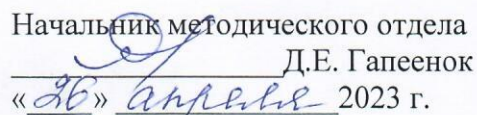 Начальник методического отдела
Д.Е. Гапеенок
«26» апреля 2023 г.